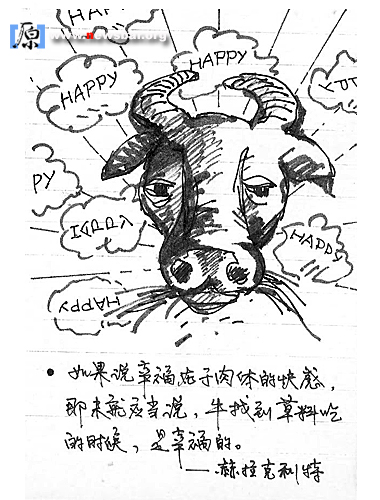 HAPP
原 www.newsbar.org
HAPPY
HAPPY
PY
HAPPY
HAPPY
HAPPY
• 如果说幸福在于肉体的快感,
那末就应当说,牛找到草料吃
的时候,是幸福的。
——赫拉克利特